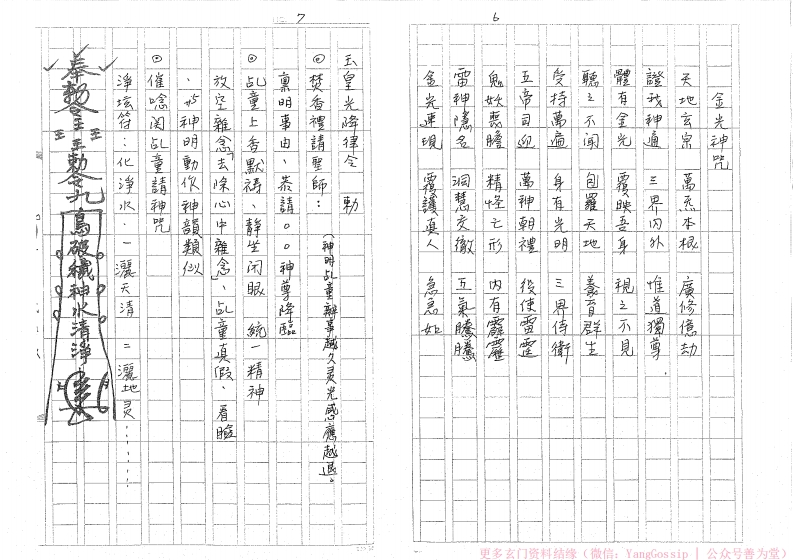 6
金光神咒
天地玄宗 萬炁本根 廣修億劫
證我神通 三界內外 惟道獨尊.
體有金光 覆映吾身 視之不見
聽之不聞 包羅天地 養育群生
受持萬遍 身有光明 三界侍衛
五帝司迎 萬神朝禮 役使雷霆
鬼妖喪膽 精怪亡形 內有霹靂
雷神隱名 洞慧交徹 五氣騰騰
金光速現 覆護真人 急急如
7
玉皇光降律令 勅
(神明乩童辦事越久灵光感應越退。
⊙焚香禮請聖師:
稟明事由、恭請。。神尊降臨
⊙乩童上香默禱、靜坐闭眼 統一精神
放空雜念「去除心中雜念」、乩童真假、看臉
、与神明動作神韻類似
⊙催唸関乩童請神咒
淨坛符:化淨水.一灑天清 二灑地灵……
奉勅令
王 王 王
勅令九鳥破穢神水清淨
更多玄门资料结缘（微信：YangGossip | 公众号善为堂）